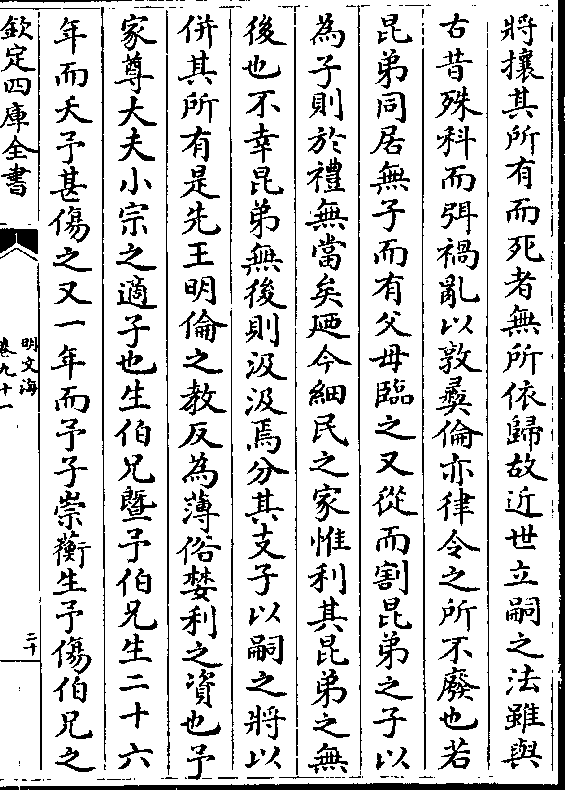 將攘其所有而死者無所依歸故近世立嗣之法雖與
古昔殊科而弭禍亂以敦彞倫亦律令之所不廢也若
昆弟同居無子而有父母臨之又從而割昆弟之子以
為子則於禮無當矣廼今細民之家惟利其昆弟之無
後也不幸昆弟無後則汲汲焉分其支子以嗣之將以
併其所有是先王明倫之教反為薄俗婪利之資也予
家尊大夫小宗之適子也生伯兄暨予伯兄生二十六
年而夭予甚傷之又一年而予子崇蘅生予傷伯兄之
欽定四庫全書
明文海
卷九十一
二十